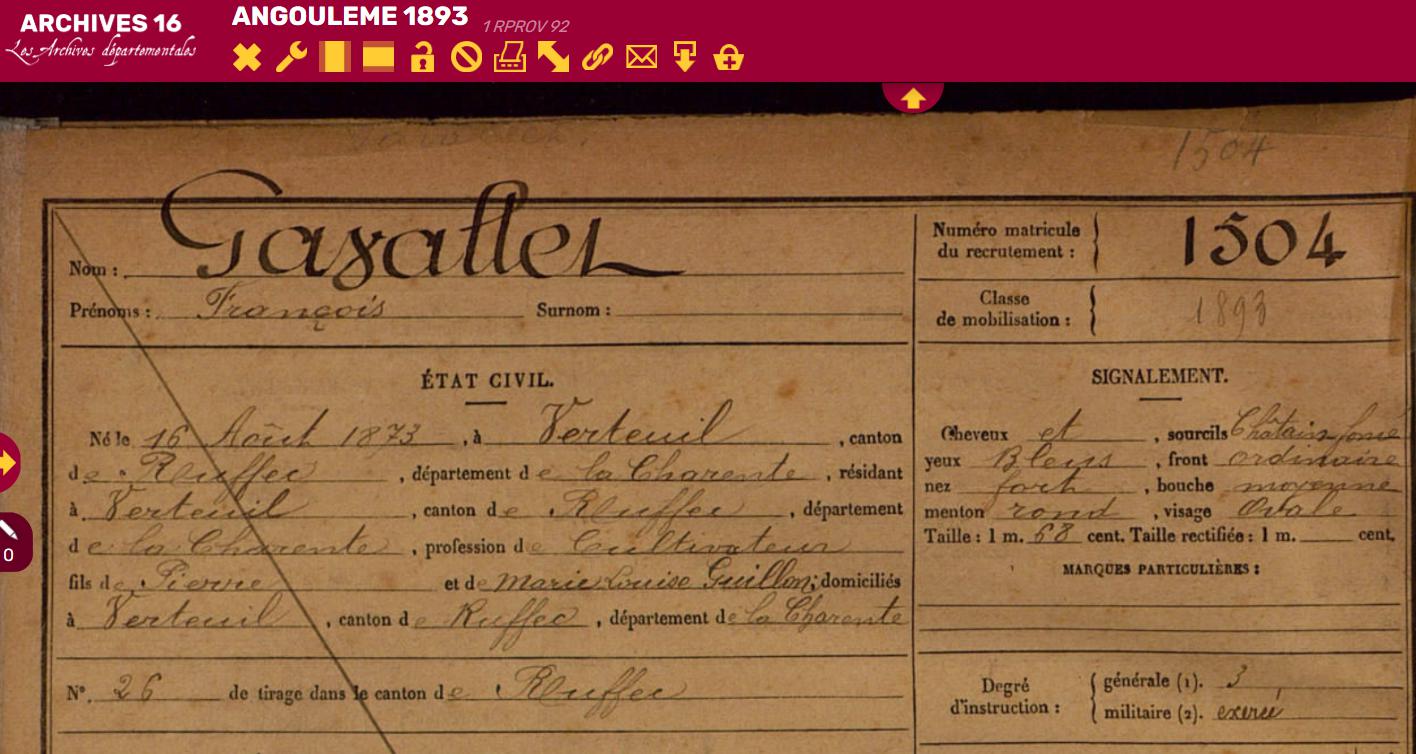 ARCHIVES 16
Les Archives départementales
ANGOULEME 1893 1 RPROV 92
0
1504
Nom : Gazallet
Numéro matricule du recrutement : 1504
Prénoms : François Surnom :
Classe de mobilisation : 1893
ÉTAT CIVIL.
Né le 16 Août 1873, à Verteuil, canton
de Ruffec, département de la Charente, résidant
à Verteuil, canton de Ruffec, département
de la Charente, profession de Cultivateur
fils de Pierre et de Marie Louise Guillon, domiciliés
à Verteuil, canton de Ruffec, département de la Charente
N°. 26 de tirage dans le canton de Ruffec
SIGNALEMENT.
Cheveux et, sourcils Châtain foncé
yeux Bleus, front ordinaire
nez fort, bouche moyenne
menton rond, visage Ovale
Taille : 1 m. 68 cent. Taille rectifiée : 1 m. cent.
MARQUES PARTICULIÈRES :
Degré d'instruction :
générale (1). 3
militaire (2). exercé